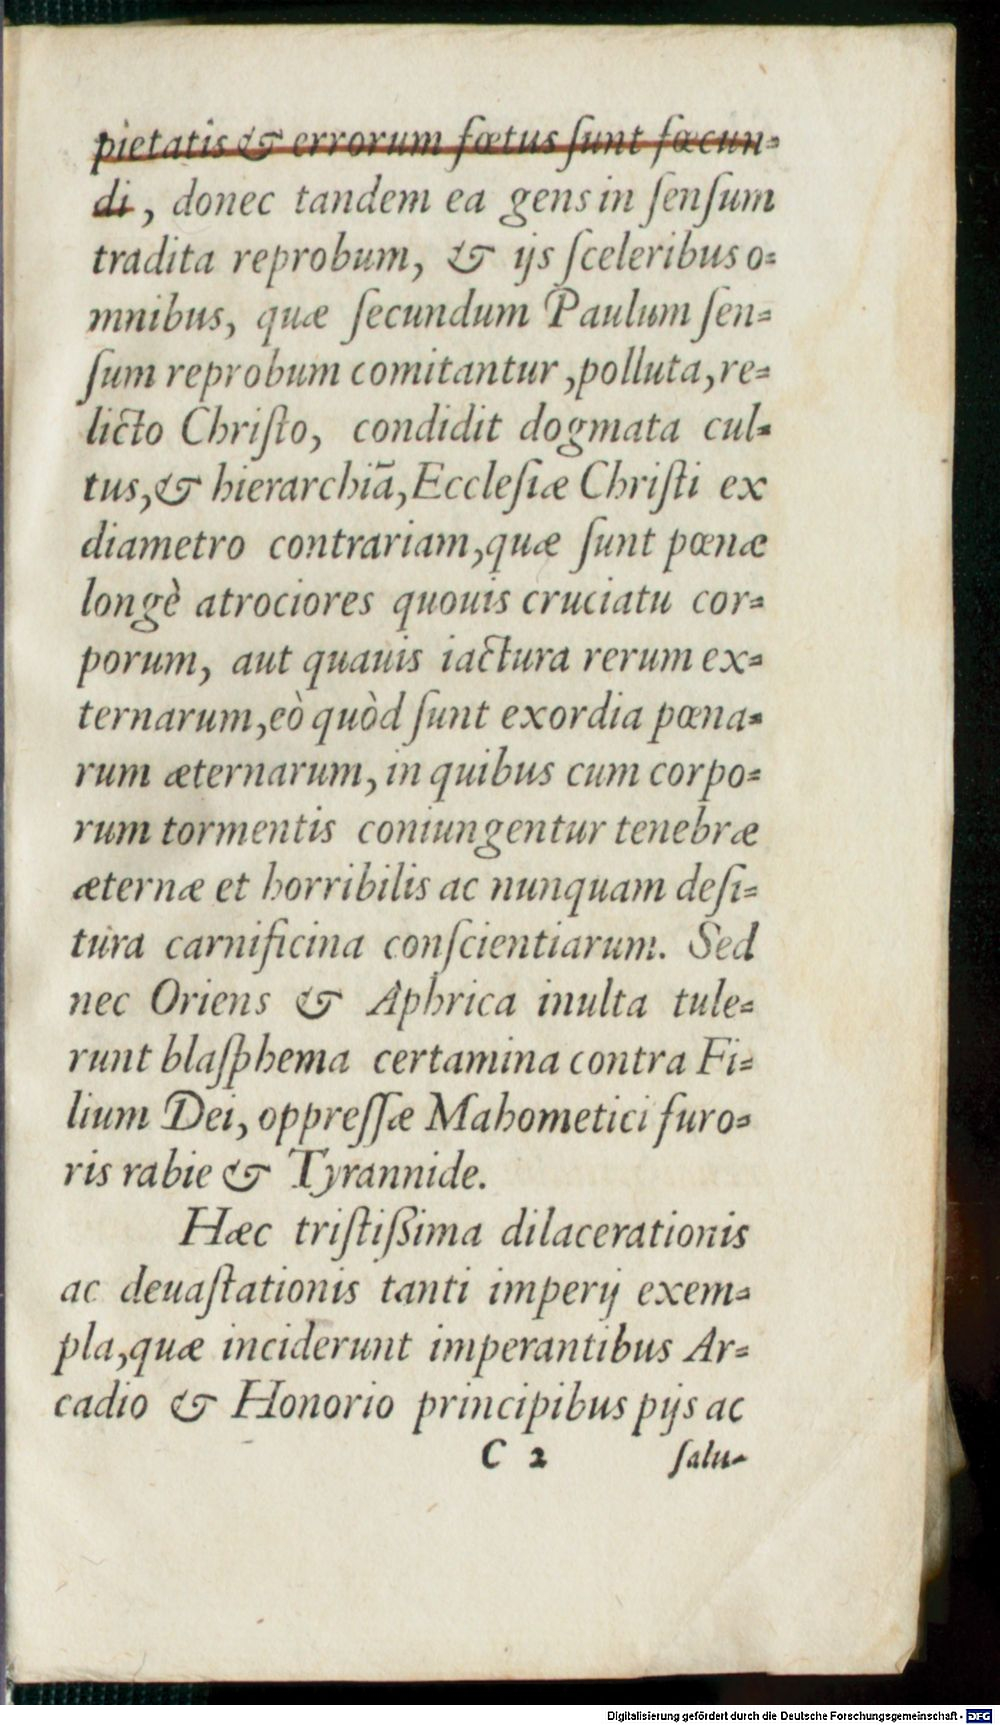 pietatis & errorum fœtus ſunt fœcun-
di, donec tandem ea gens in ſenſum
tradita reprobum, & ijs ſceleribus o-
mnibus, quæ ſecundum Paulum ſen-
ſum reprobum comitantur, polluta, re-
licto Chriſto, condidit dogmata cul-
tus, & hierarchiā, Eccleſiæ Chriſti ex
diametro contrariam, quæ ſunt pœnæ
longè atrociores quouis cruciatu cor-
porum, aut quauis iactura rerum ex-
ternarum, eò quòd ſunt exordia pœna-
rum æternarum, in quibus cum corpo-
rum tormentis coniungentur tenebræ
æternæ et horribilis ac nunquam deſi-
tura carnificina conſcientiarum. Sed
nec Oriens & Aphrica inulta tule-
runt blaſphema certamina contra Fi-
lium Dei, oppreſſæ Mahometici furo-
ris rabie & Tyrannide.
Hæc triſtißima dilacerationis
ac deuaſtationis tanti imperij exem-
pla, quæ inciderunt imperantibus Ar-
cadio & Honorio principibus pijs ac
C 2 ſalu-
Digitalisierung gefördert durch die Deutsche Forschungsgemeinschaft - DFG